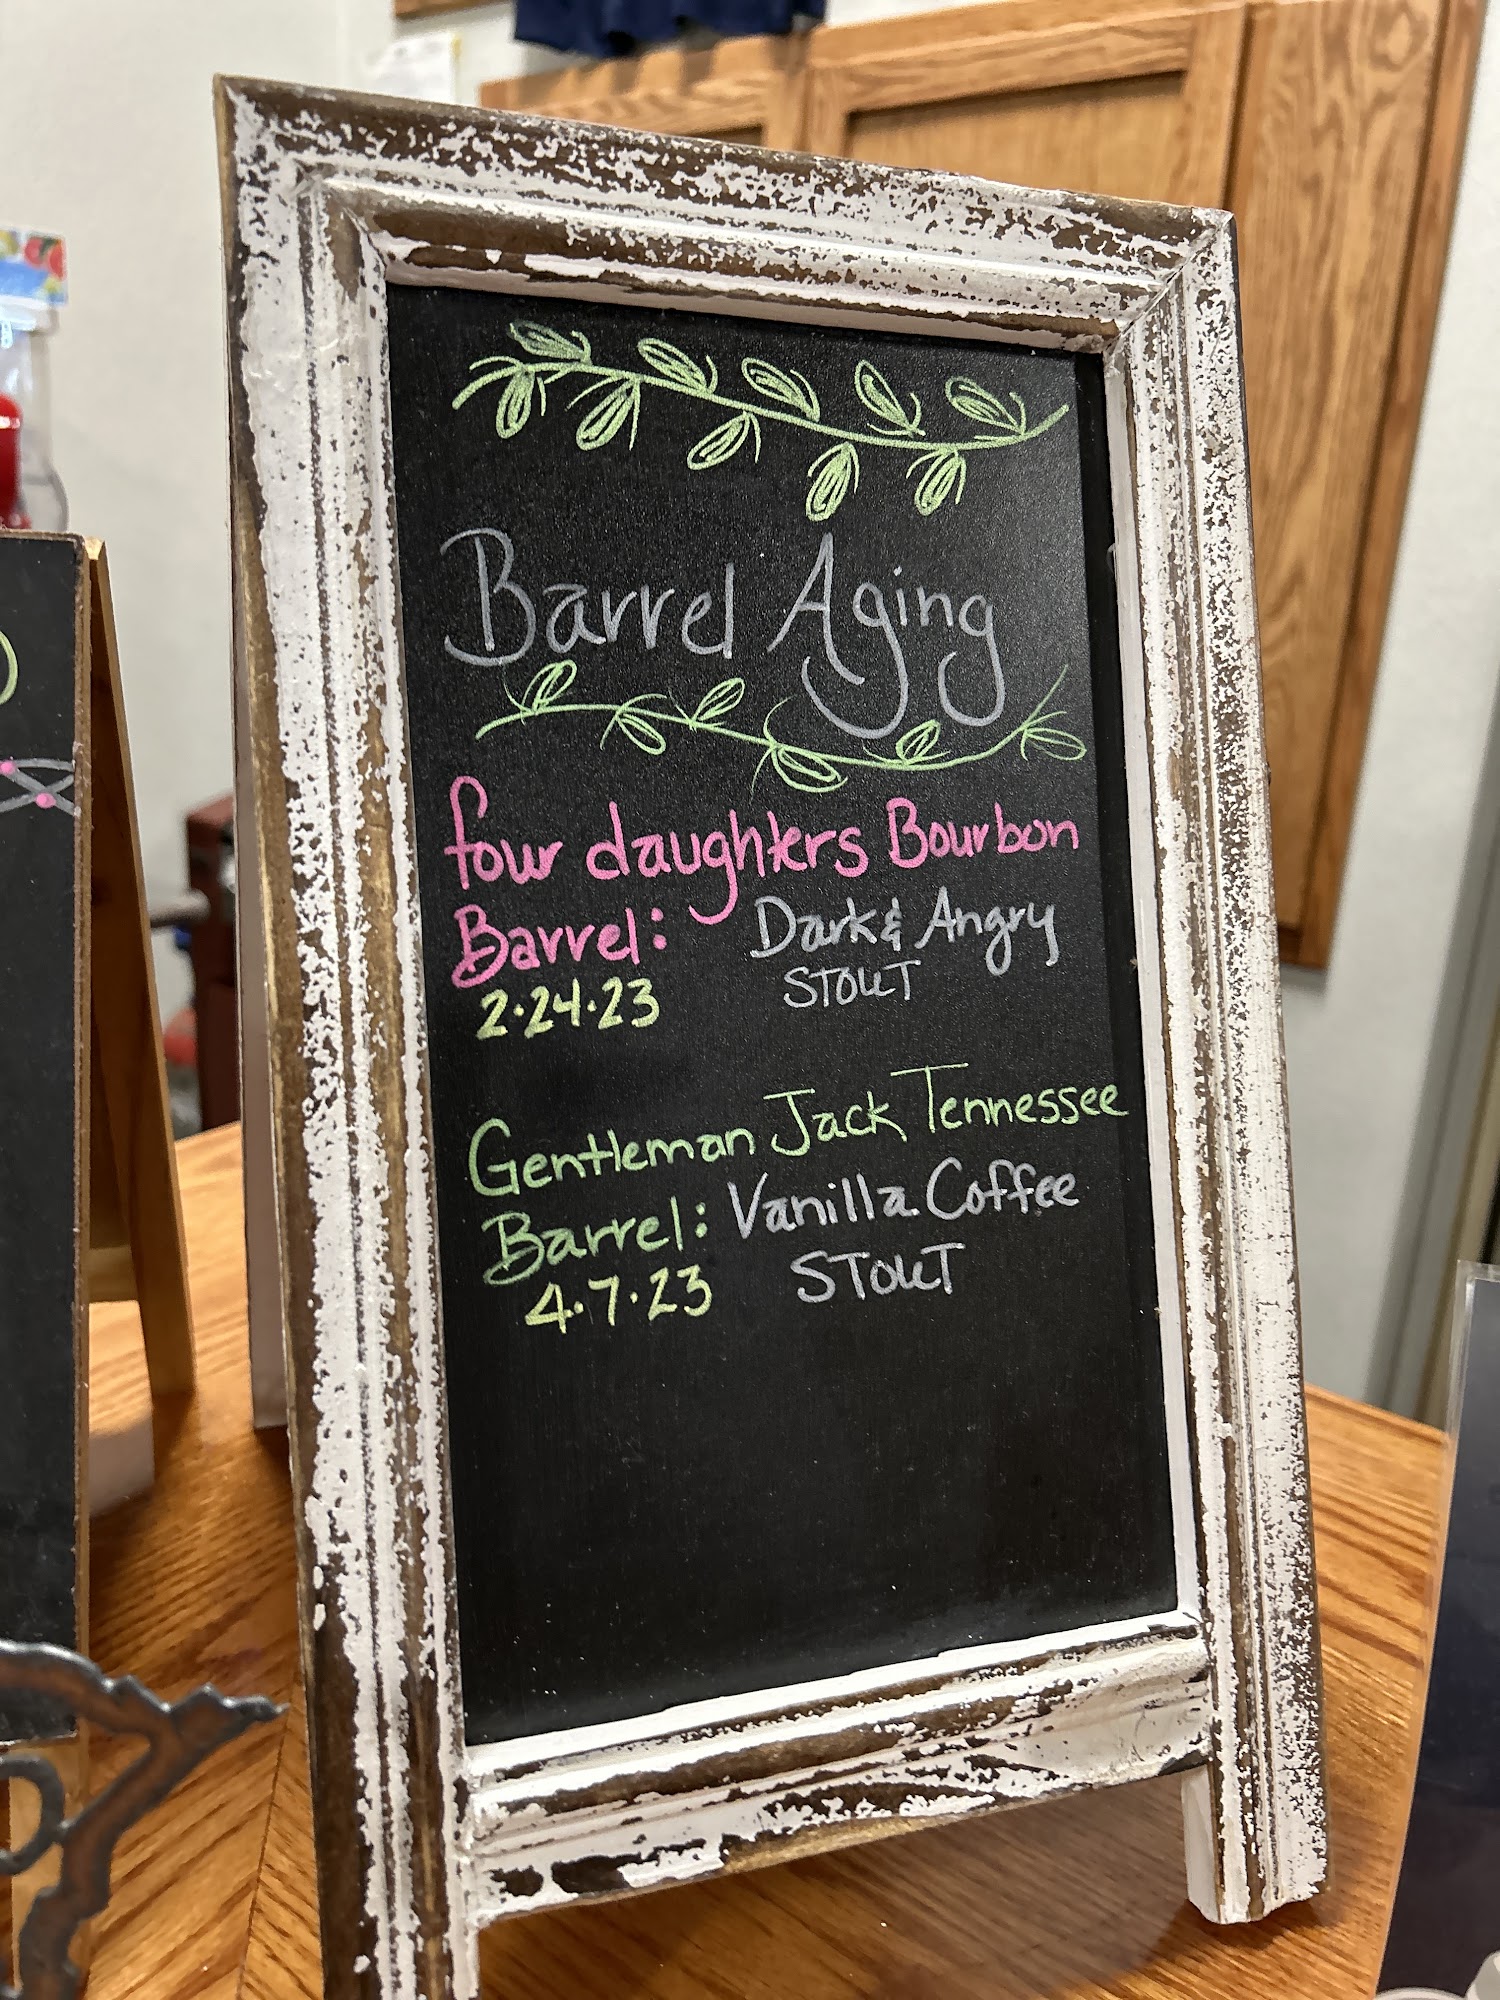 Barrel Aging
four daughters Bourbon
Barrel: Dark & Angry
2.24.23 STOUT
Gentleman Jack Tennessee
Barrel: Vanilla Coffee
4.7.23 STOUT